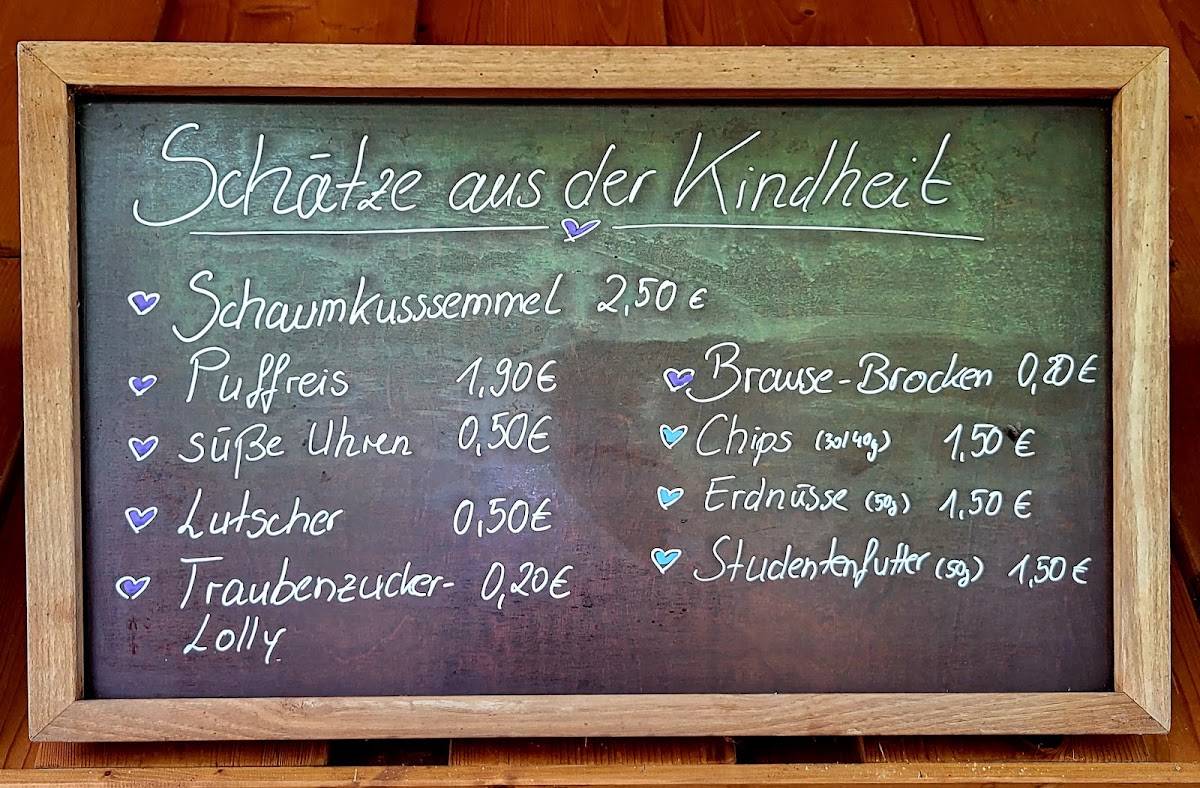 Schätze aus der Kindheit
Schaumkusssemmel 2,50 €
Puffreis 1,90€
süße Uhren 0,50€
Lutscher 0,50€
Traubenzucker- 0,20€
Lolly
Brause-Brocken 0,20€
Chips (30/40g) 1,50€
Erdnüsse (50g) 1,50€
Studentenfutter (50g) 1,50€